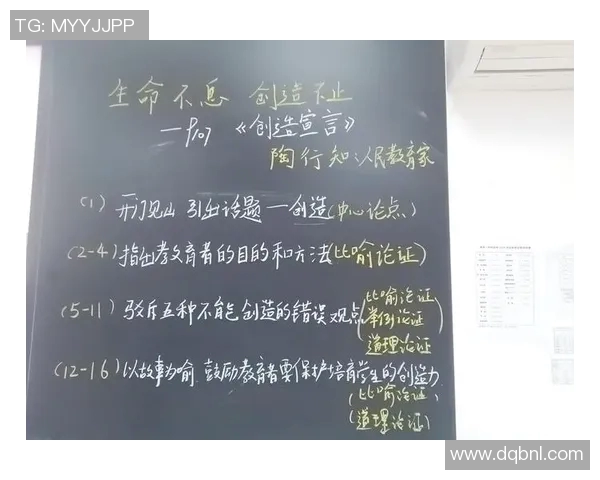 TG: MYYJJPP
生命不息 创造不止
—P107 《创造宣言》
陶行知:人民教育家
(1) 开门见山 引出话题—创造(中心论点)
(2-4)指出教育者的目的和方法(比喻论证)
(5-11) 驳斥五种不能创造的错误观点(比喻论证
举例论证
道理论证)
(12-16)以故事为喻 鼓励教育者要保护培育学生的创造力
(比喻论证、
道理论证)
www.dqbnl.com